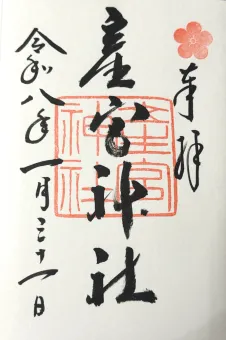 奉拝
産宮神社
産宮
神社
令和八年一月三十一日